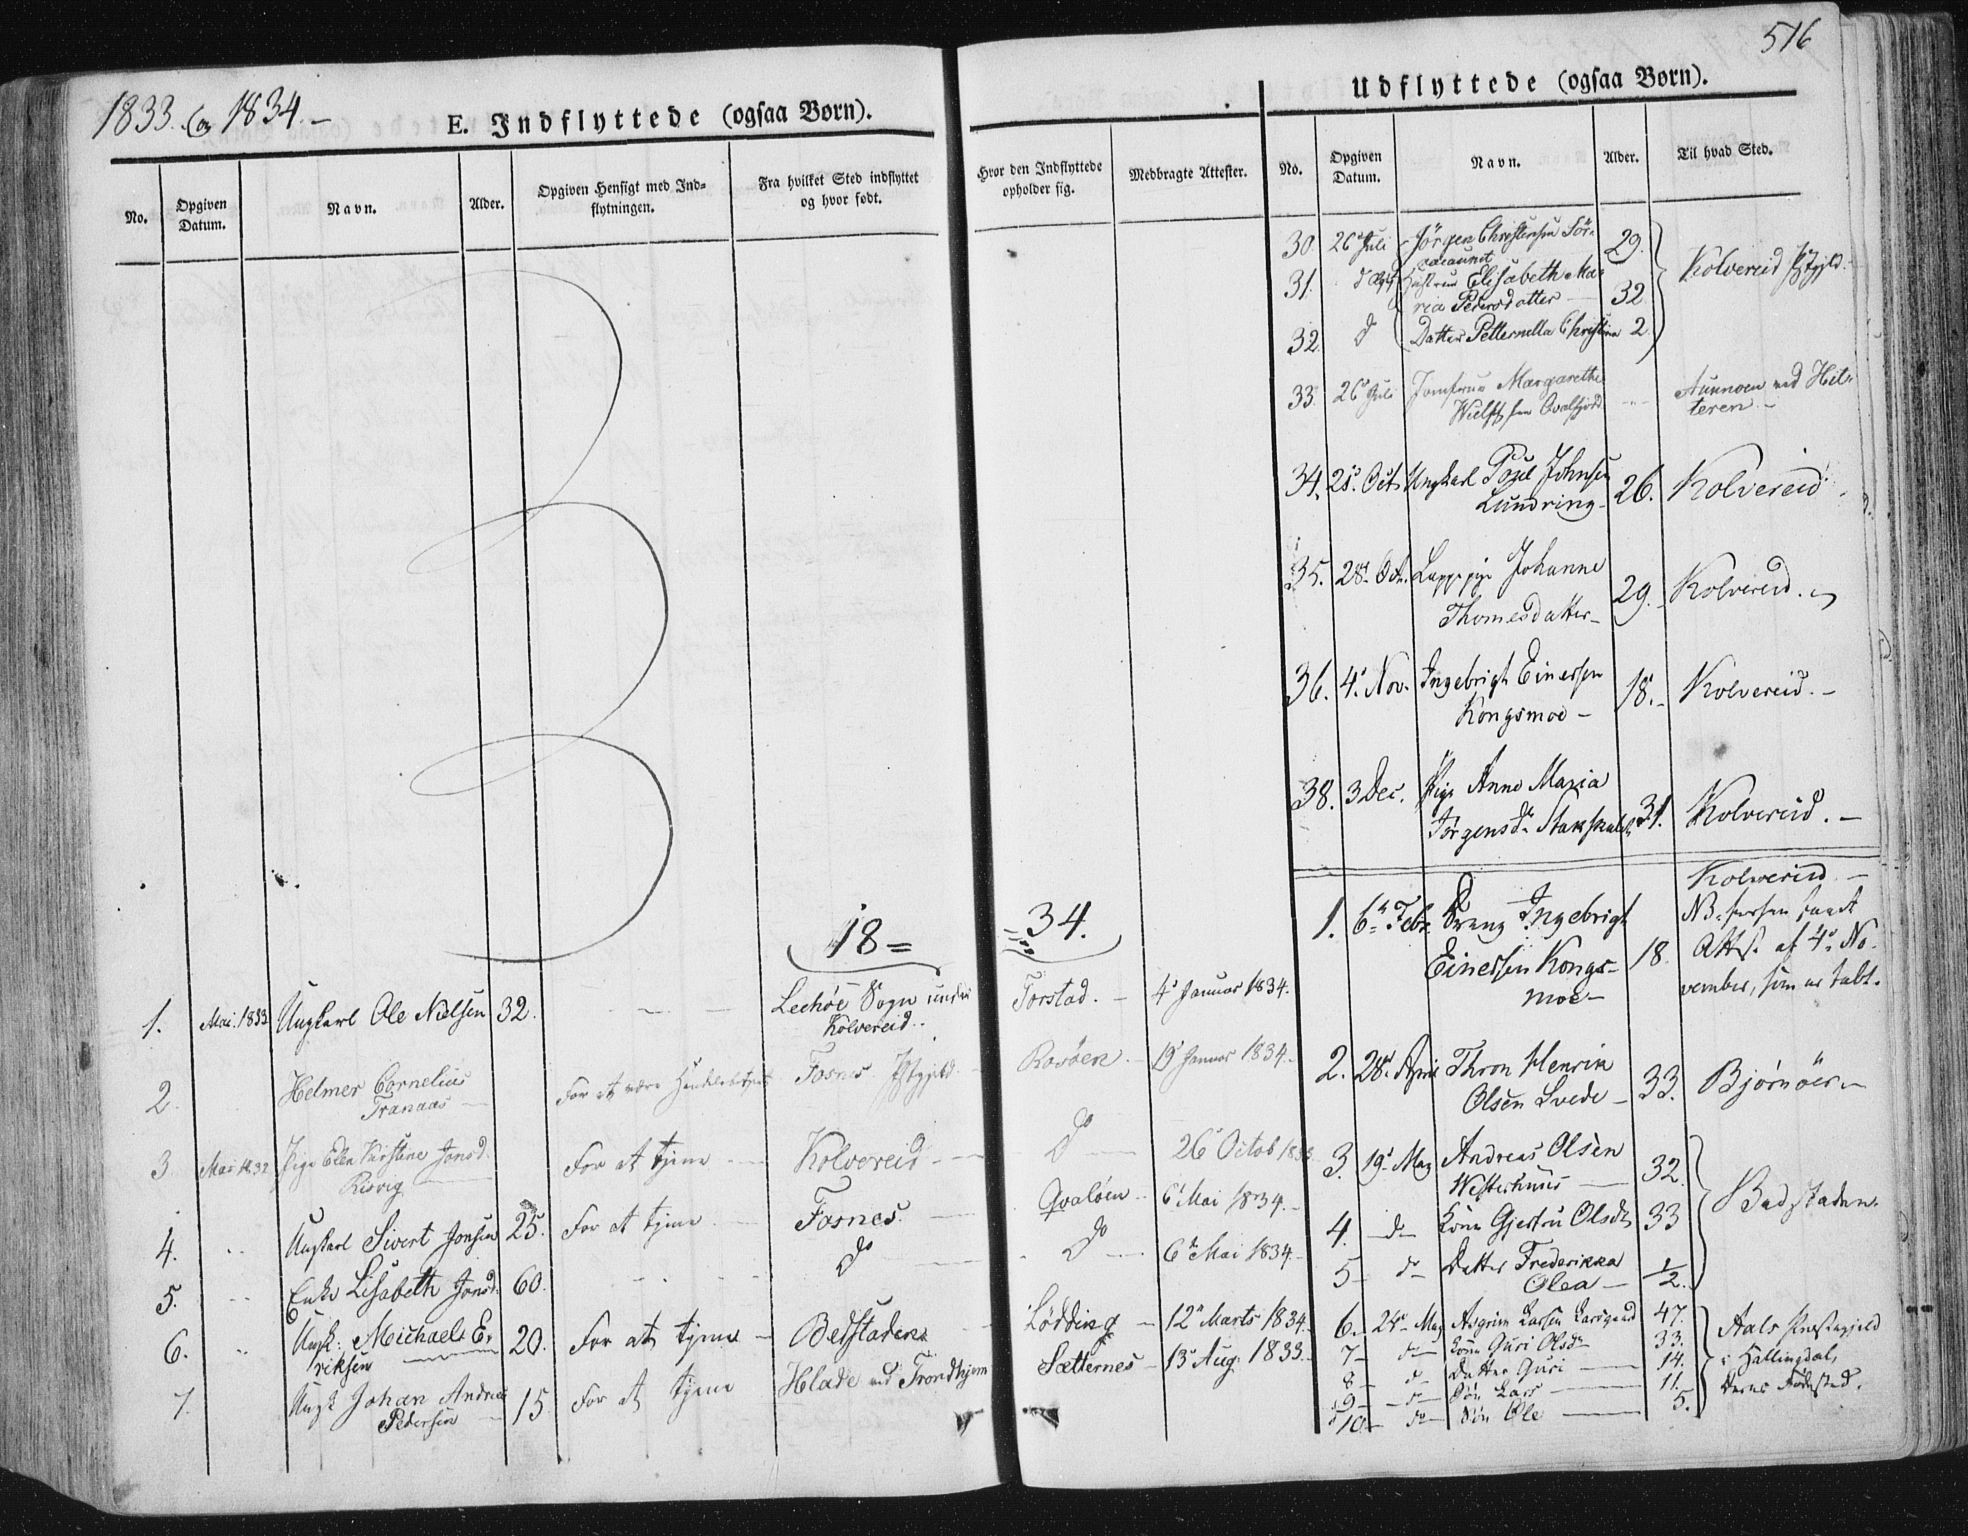 516
1833. og 1834.-
E. Indflyttede (ogsaa Børn).
No.
Opgiven Datum.
Navn.
Alder.
Opgiven Hensigt med Ind=
flytningen.
Fra hvilket Sted indflyttet
og hvor født.
Hvor den Indflyttede
opholder sig.
Medbragte Attester.
18=34.
1. Mai. 1833 Ungkarl Ole Nielsen 32. Lechöe Sogn under Kolvereid. Torstad. 4d Januar 1834.
2. Helmer Cornelius Tranaas For at være Fosnes Pstgjeld. Rosöen 19d Januar 1834.
3 Mai 1832 Pige Elen Kirstine Jonsd. Risvig For at tjene Kolvereid do 26d Octob 1833
4. Ungkarl Sivert Jonsen 25. For at tjene Fosnes. Qvalöen 6d Mai 1834.
5. Enke Lisabeth Jonsd. 60. do do 6d Mai 1834.
6. Ungk: Michael Eriksen 20. For at tjene Bedstaden Lødding 12d Marts 1834.
7. Ungk Johan Andreas Pedersen 15 For at tjene Hlade ved Trondhjem Sætternes 13d Aug: 1833.
Udflyttede (ogsaa Børn).
No.
Opgiven Datum.
Navn.
Alder.
Til hvad Sted.
30. 26d Juli Jörgen Christensen 29. Kolvereid Pstgjeld.
31. do Hustrue Elisabeth Maria Pedersdatter 32
32. do Datter Petternella Christina 2.
33. 26d Juli Jomfrue Margarethe Qvalfjord Aunøen ved Hitteren.
34. 25d Oct. Ungkarl Poul Johnsen Lundring 26. Kolvereid
35. 28d Oct. Lappepige Johanne Thomesdatter 29. Kolvereid.
36. 4d Nov. Ingebrigt Einersen Kongsmoe 18. Kolvereid.
38. 3 Dec. Pige Anne Maria Jörgensdr 31. Kolvereid.
1. 6d Febr. Dreng Ingebrigt Einersen Kongsmoe 18. Kolvereid NB. Attst. af 4d November, som er tabt.
2. 28d April Thron Henrik Olsen Svede 33. Bjørnöer
3. 19d May Andreas Olsen Westerhuus 32. Badstaden.
4. do Kone Gjertru Olsdr 33
5 do Datter Frederikka Olea 1/2.
6. 24d May Asgrim Larsen 47. Aals Præstegjeld i Hallingdal, deres Fødested.
7 do Kone Guri Olsdr 33.
8 do Datter Guri 14.
9 do Søn Lars 11.
10 do Søn Ole 5.